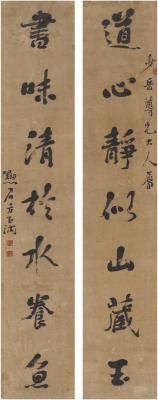 少岳尊兄大人属
道心靜似山藏玉
書味清於水養魚
黟石方玉潤